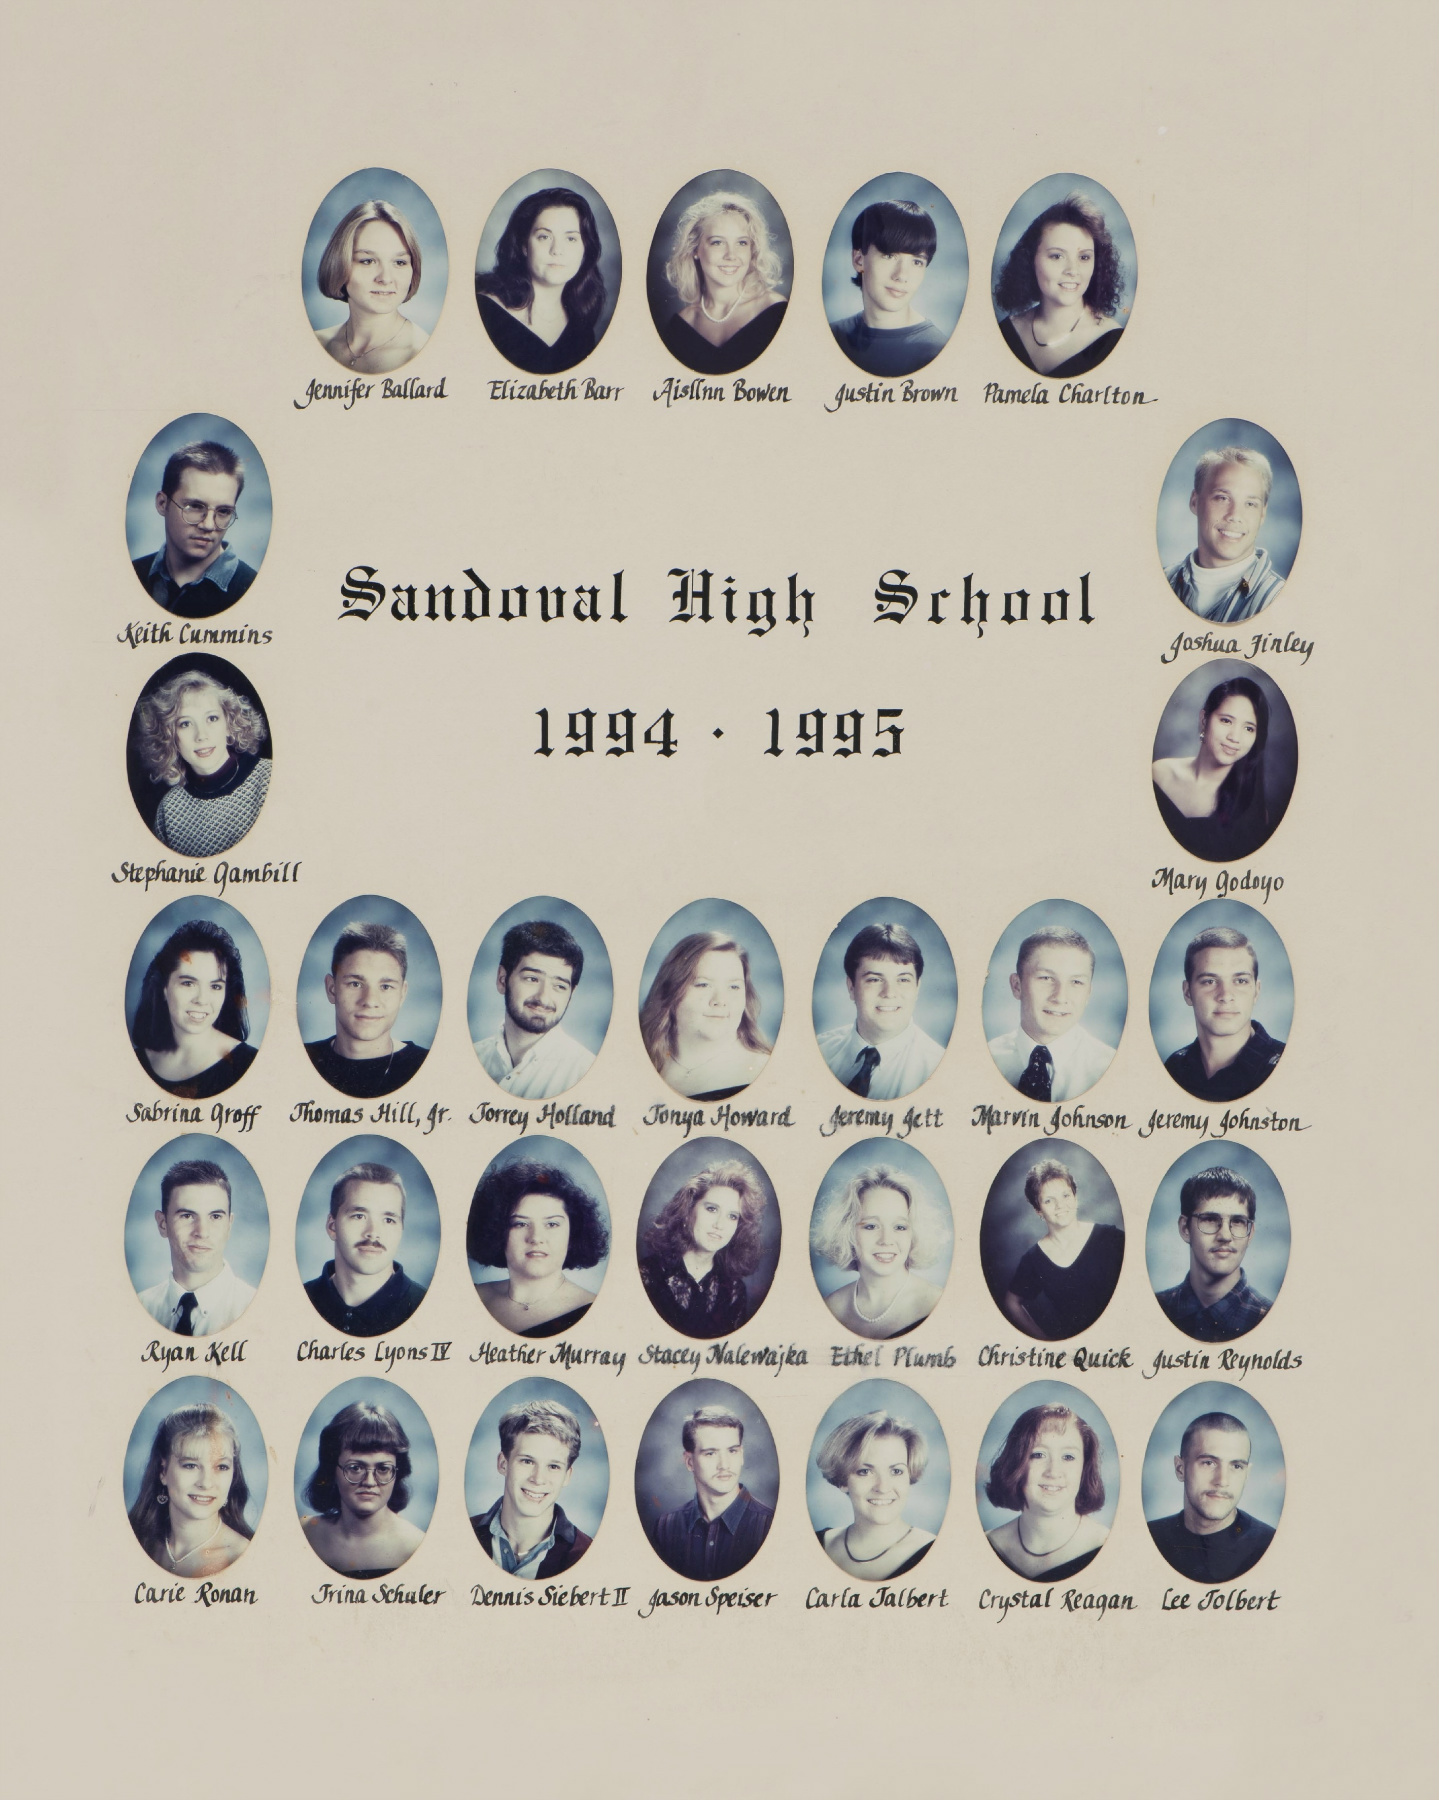 Jennifer Ballard Elizabeth Barr Aisllnn Bowen Justin Brown Pamela Charlton
Sandoval High School
Keith Cummins Joshua Finley
1994 · 1995
Stephanie Gambill Mary Godoyo
Sabrina Groff Thomas Hill, Jr. Torrey Holland Tonya Howard Jeremy Jett Marvin Johnson Jeremy Johnston
Ryan Kell Charles Lyons IV Heather Murray Stacey Nalewajka Ethel Plumb Christine Quick Justin Reynolds
Carie Ronan Trina Schuler Dennis Siebert II Jason Speiser Carla Talbert Crystal Reagan Lee Tolbert